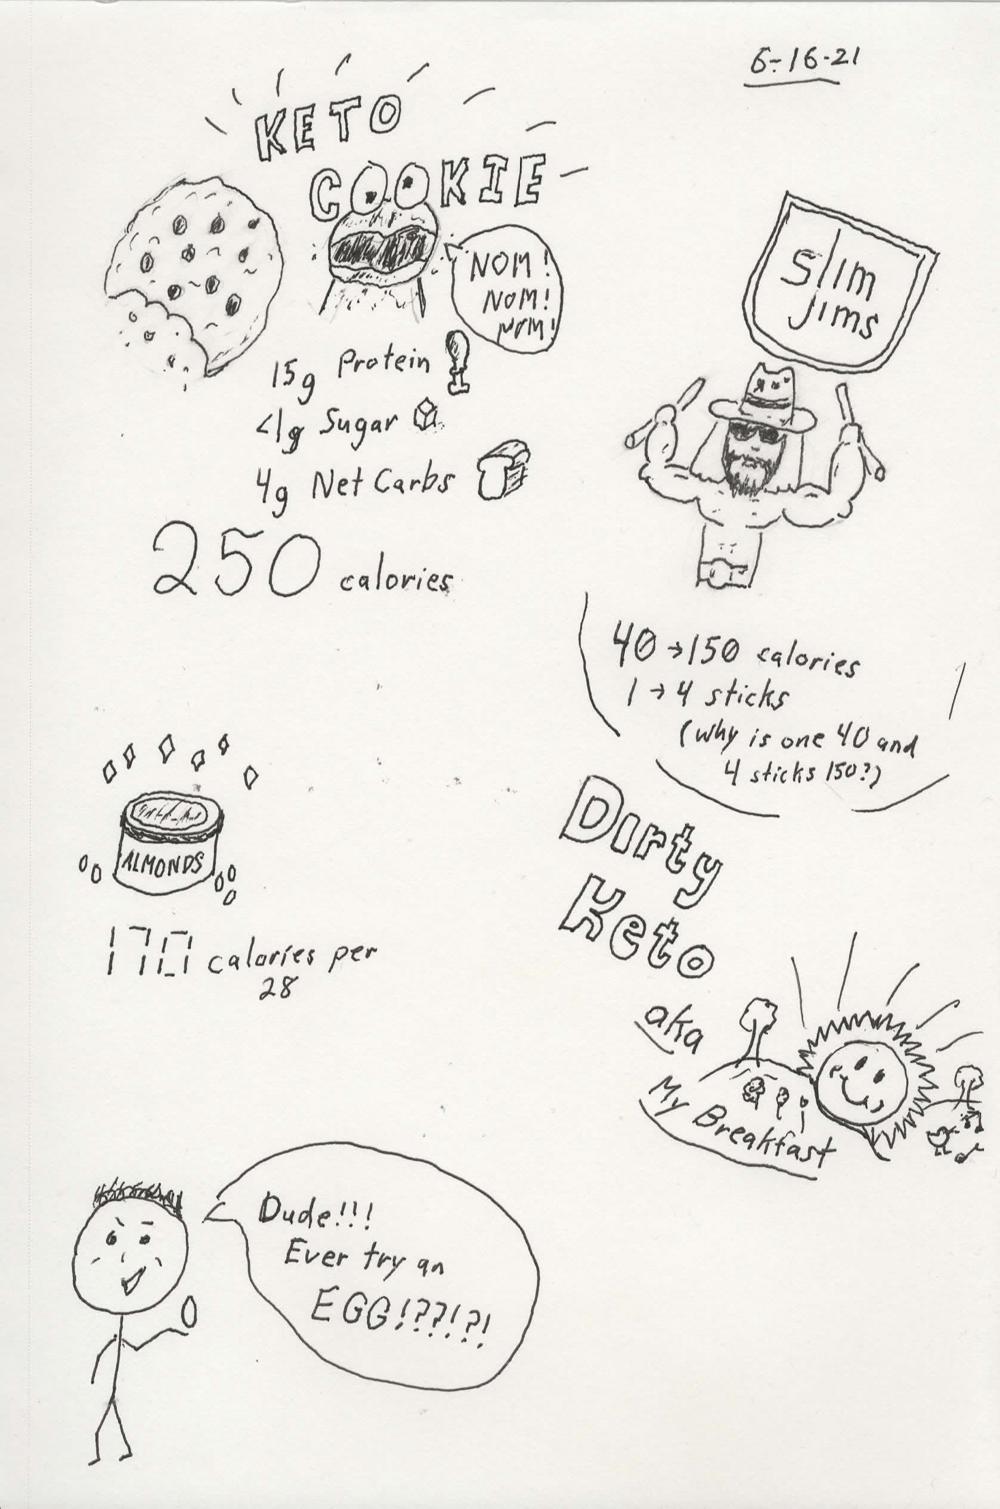 6-16-21
KETO
COOKIE
NOM!
NOM!
NOM!
15g Protein
<1g Sugar
4g Net Carbs
250 calories
slim
jims
40→150 calories
1→4 sticks
(why is one 40 and
4 sticks 150?)
ALMONDS
170 calories per
28
Dirty
Keto
aka
My Breakfast
Dude!!!
Ever try an
EGG!??!?!